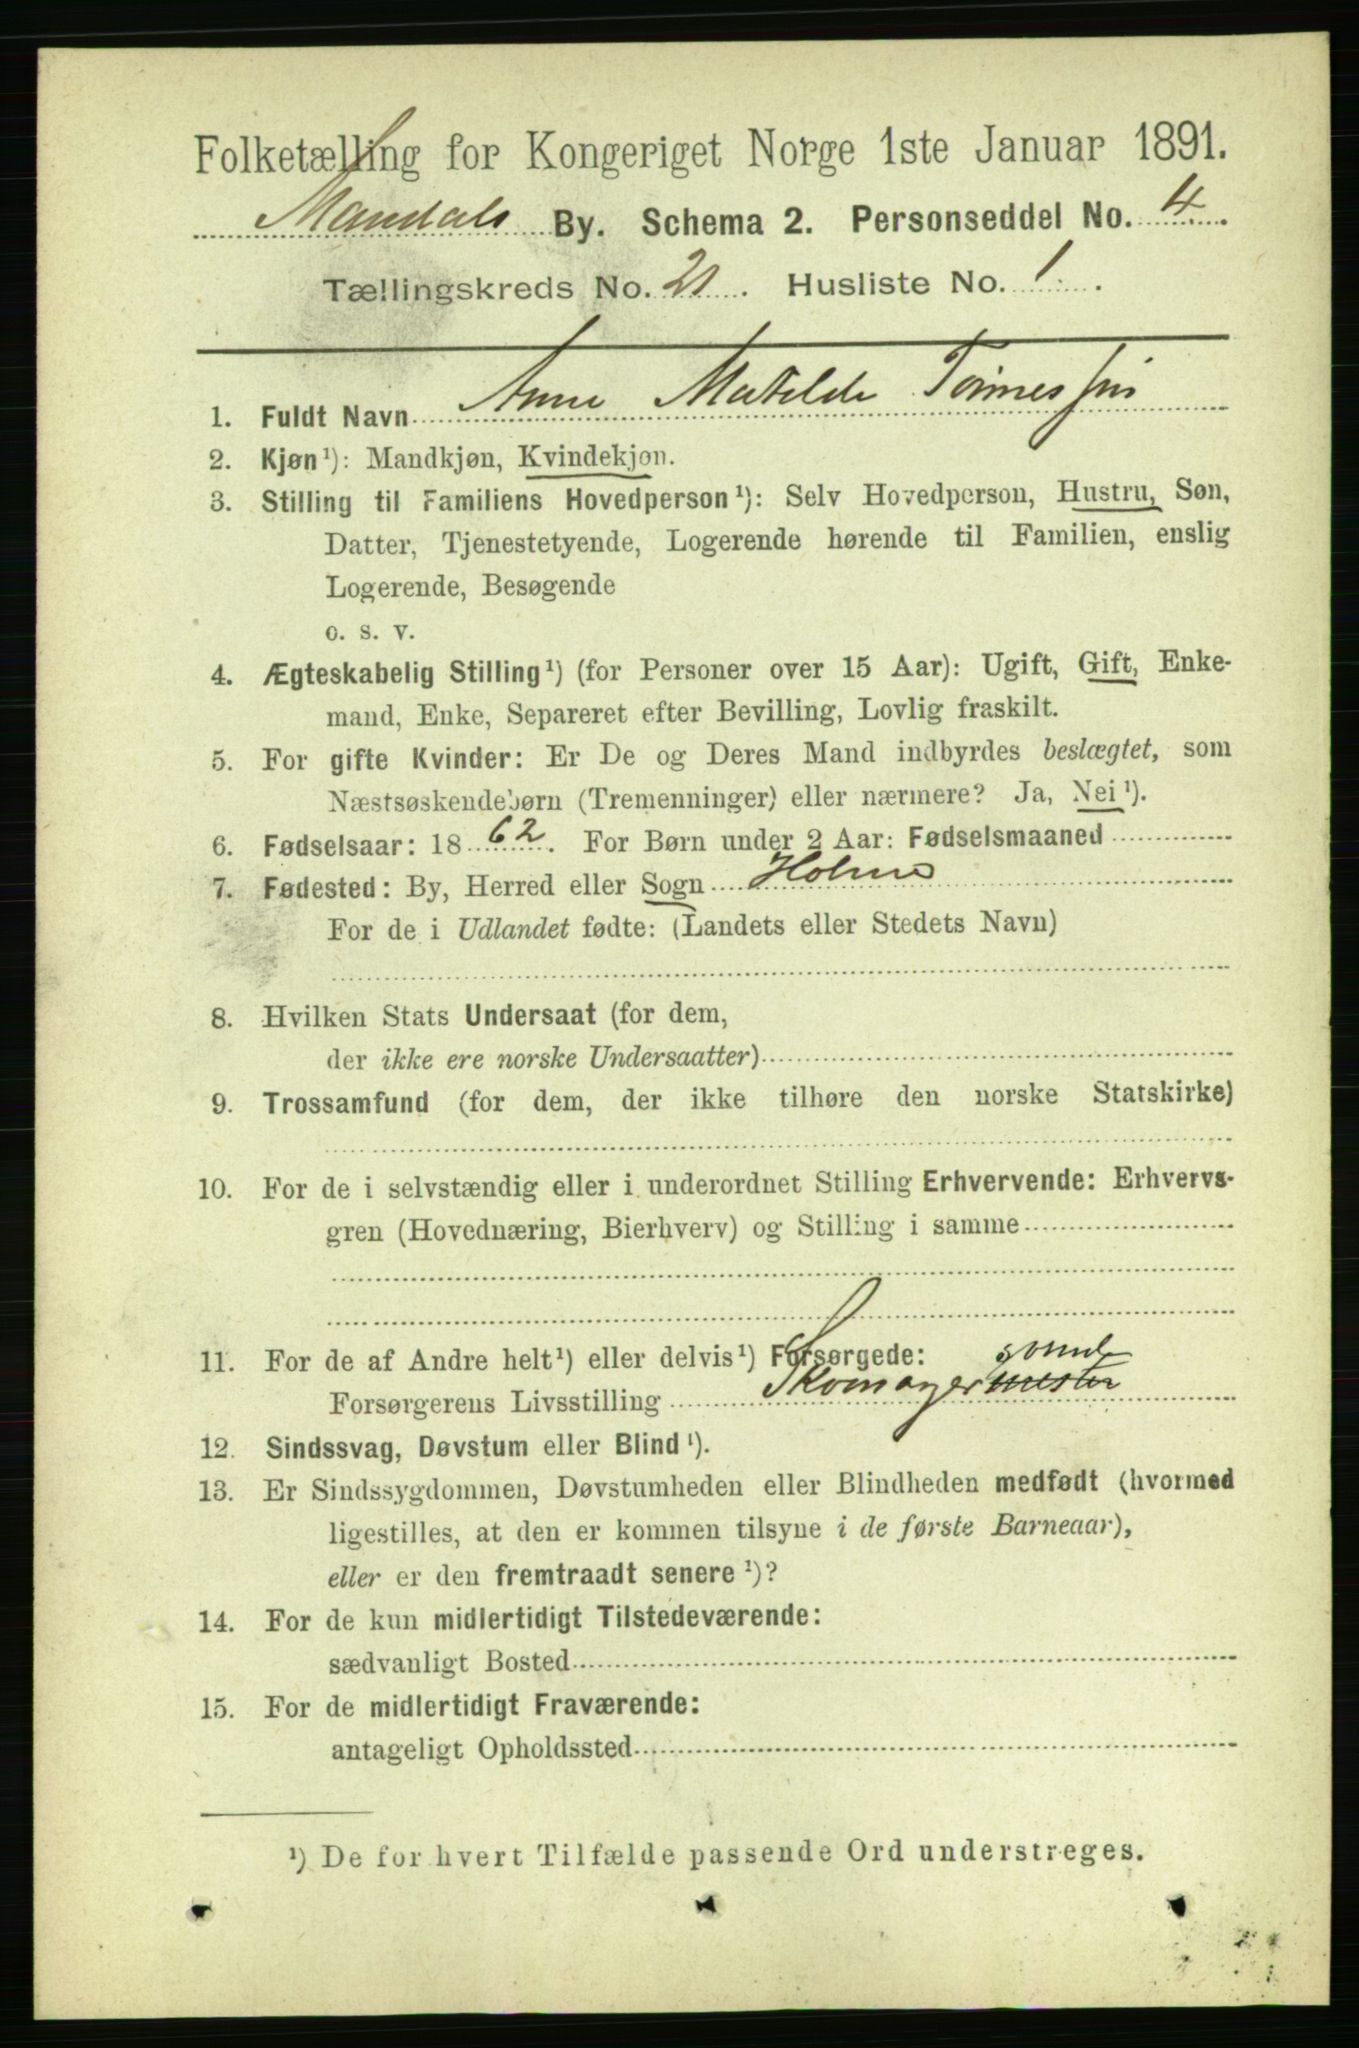 Folketælling for Kongeriget Norge 1ste Januar 1891.
Mandals By. Schema 2. Personseddel No. 4.
Tællingskreds No. 21. Husliste No. 1.
1. Fuldt Navn Anne Matilde Tønnessen
2. Kjøn¹): Mandkjøn, Kvindekjøn.
3. Stilling til Familiens Hovedperson¹): Selv Hovedperson, Hustru, Søn,
Datter, Tjenestetyende, Logerende hørende til Familien, enslig
Logerende, Besøgende
o. s. v.
4. Ægteskabelig Stilling¹) (for Personer over 15 Aar): Ugift, Gift, Enke-
mand, Enke, Separeret efter Bevilling, Lovlig fraskilt.
5. For gifte Kvinder: Er De og Deres Mand indbyrdes beslægtet, som
Næstsøskendebørn (Tremenninger) eller nærmere? Ja, Nei¹).
6. Fødselsaar: 1862. For Børn under 2 Aar: Fødselsmaaned
7. Fødested: By, Herred eller Sogn Holme
For de i Udlandet fødte: (Landets eller Stedets Navn)
8. Hvilken Stats Undersaat (for dem,
der ikke ere norske Undersaatter)
9. Trossamfund (for dem, der ikke tilhøre den norske Statskirke)
10. For de i selvstændig eller i underordnet Stilling Erhvervende: Erhvervs-
gren (Hovednæring, Bierhverv) og Stilling i samme
11. For de af Andre helt¹) eller delvis¹) Forsørgede: svend
Forsørgerens Livsstilling Skomagermester
12. Sindssvag, Døvstum eller Blind¹).
13. Er Sindssygdommen, Døvstumheden eller Blindheden medfødt (hvormed
ligestilles, at den er kommen tilsyne i de første Barneaar),
eller er den fremtraadt senere¹)?
14. For de kun midlertidigt Tilstedeværende:
sædvanligt Bosted
15. For de midlertidigt Fraværende:
antageligt Opholdssted
¹) De for hvert Tilfælde passende Ord understreges.